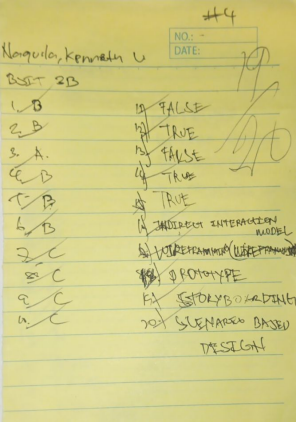 #4
NO.: -
DATE:
Naquila, Kenneth U
BSIT 3B
19/20
1. B
2. B
3. A.
4. B
5. B
6. B
7. C
8. C
9. C
10. C
11. FALSE
12. TRUE
13. FALSE
14. TRUE
15. TRUE
16. INDIRECT INTERACTION MODEL
17. WIREFRAMING
18. PROTOTYPE
19. STORYBOARDING
20. SCENARIO BASED
DESIGN